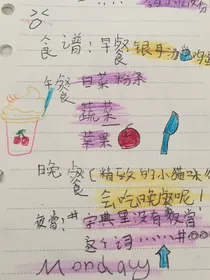 食谱:早餐 银耳汤 鸡蛋
午餐 白菜 粉条
蔬菜
苹果
晚餐(精致的小猫咪
会吃晚餐呢!
夜宵:#字典里没有夜宵
这个词……!##
Monday